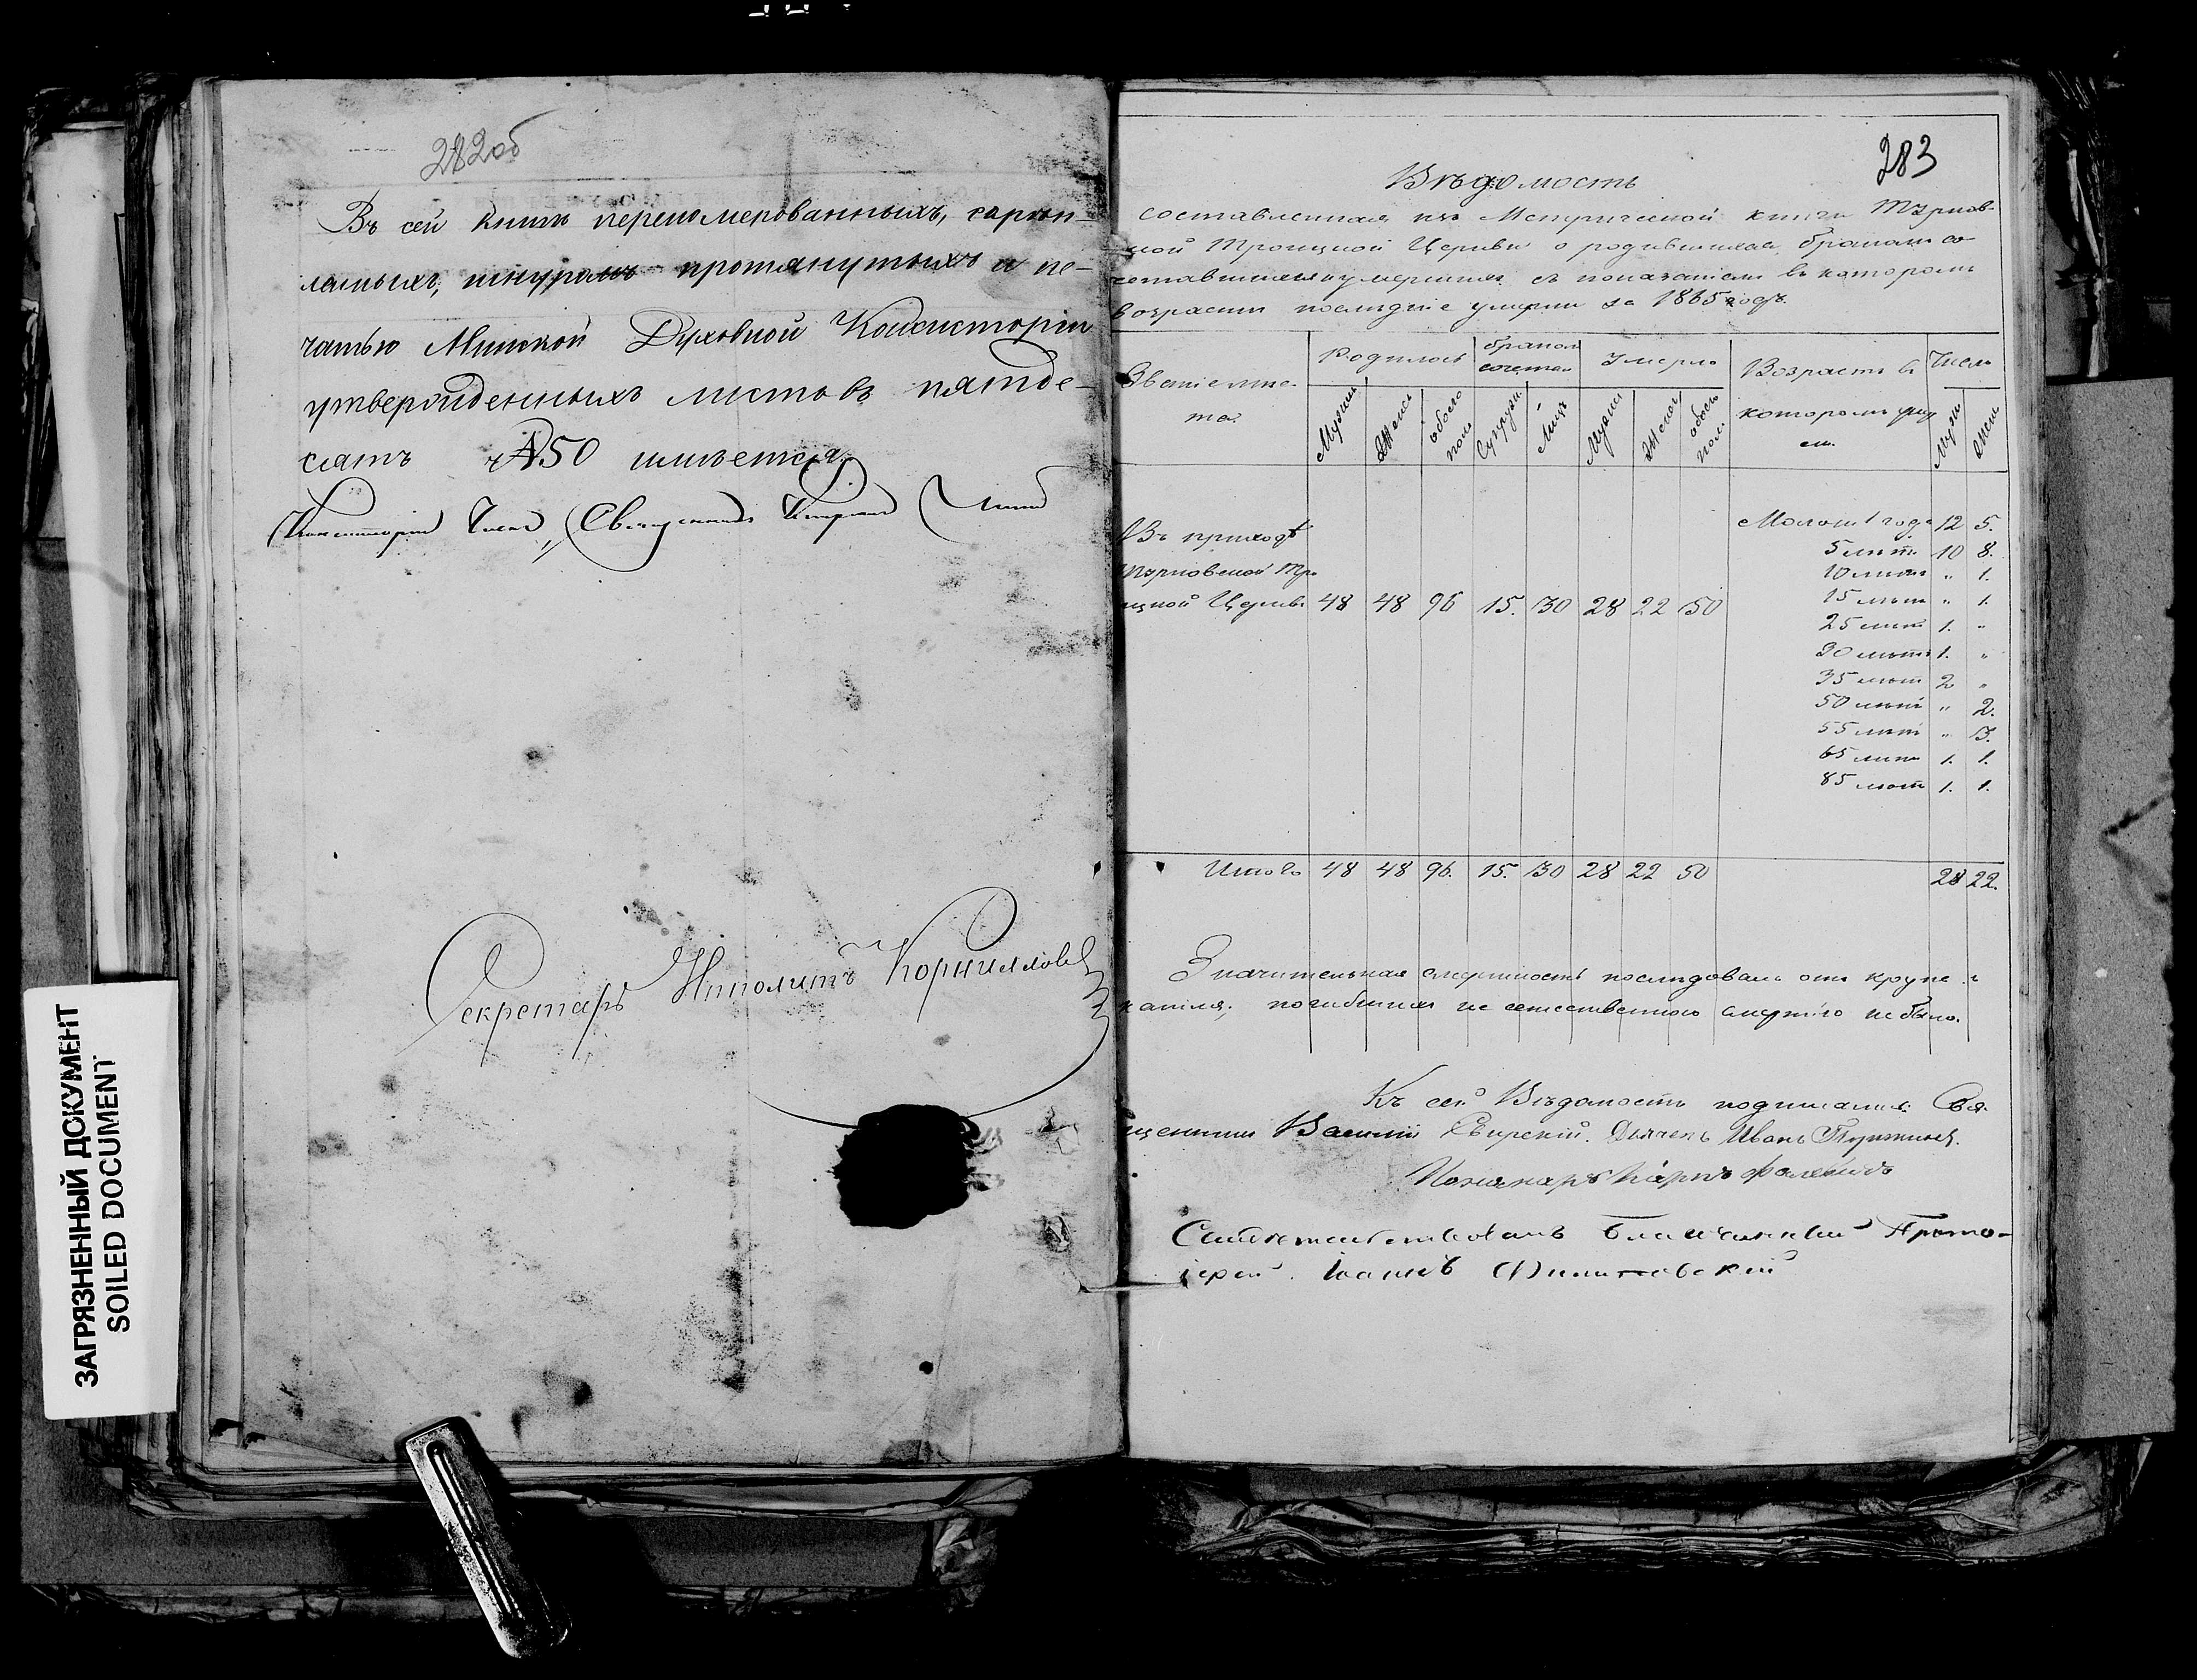 282об
Въ сей книгѣ перенумерованныхъ, скрѣп-
ленныхъ, шнуромъ протянутыхъ и пе-
чатью Минской Духовной Консисторіи
утвержденныхъ листовъ пятьде-
сятъ №50 имѣется.
Консисторіи Членъ, Священникъ
Секретарь Ипполитъ Корнилловъ
ЗАГРЯЗНЕННЫЙ ДОКУМЕНТ
SOILED DOCUMENT
283
Вѣдомость
составленная изъ Метрической книги Тѣрнов-
ской Троицкой Церкви о родившихся, бракомъ со
четавшихся и умершихъ съ показаніемъ въ которомъ
возрастѣ послѣдніе умерли за 1865 годъ.
Званіе мѣс-
та.
Родилось
Мужеска
Женск
обоего пола
бракомъ сочетал
Супруж.
Лицъ
Умерло
Мужска
Женск
обоего пола
Возрастъ въ
которомъ умер
ли.
Число
Муж
Жен
Въ приходѣ
Тѣрновской Тро
ицкой Церкви 48 48 96 15. 30 28 22 50
Менѣе 1 года 12 5.
5 лѣтъ 10 8.
10 лѣтъ " 1.
15 лѣтъ " 1.
25 лѣтъ 1. "
30 лѣтъ 1. "
35 лѣтъ 2 "
50 лѣтъ " 2.
55 лѣтъ " 3.
65 лѣтъ 1. 1.
85 лѣтъ 1. 1.
Итого 48 48 96. 15. 30 28 22 50 28 22.
Значительная смертность послѣдовала отъ крупа и
кашля. погибшихъ не естественною смертію не было.
Къ сей Вѣдомости подписались: Свя
щенникъ Василій Свирскій. Дьячекъ Иванъ
Пономарь Карпъ
Свидѣтельствовалъ Благочинный Прото-
іерей Іоаннъ